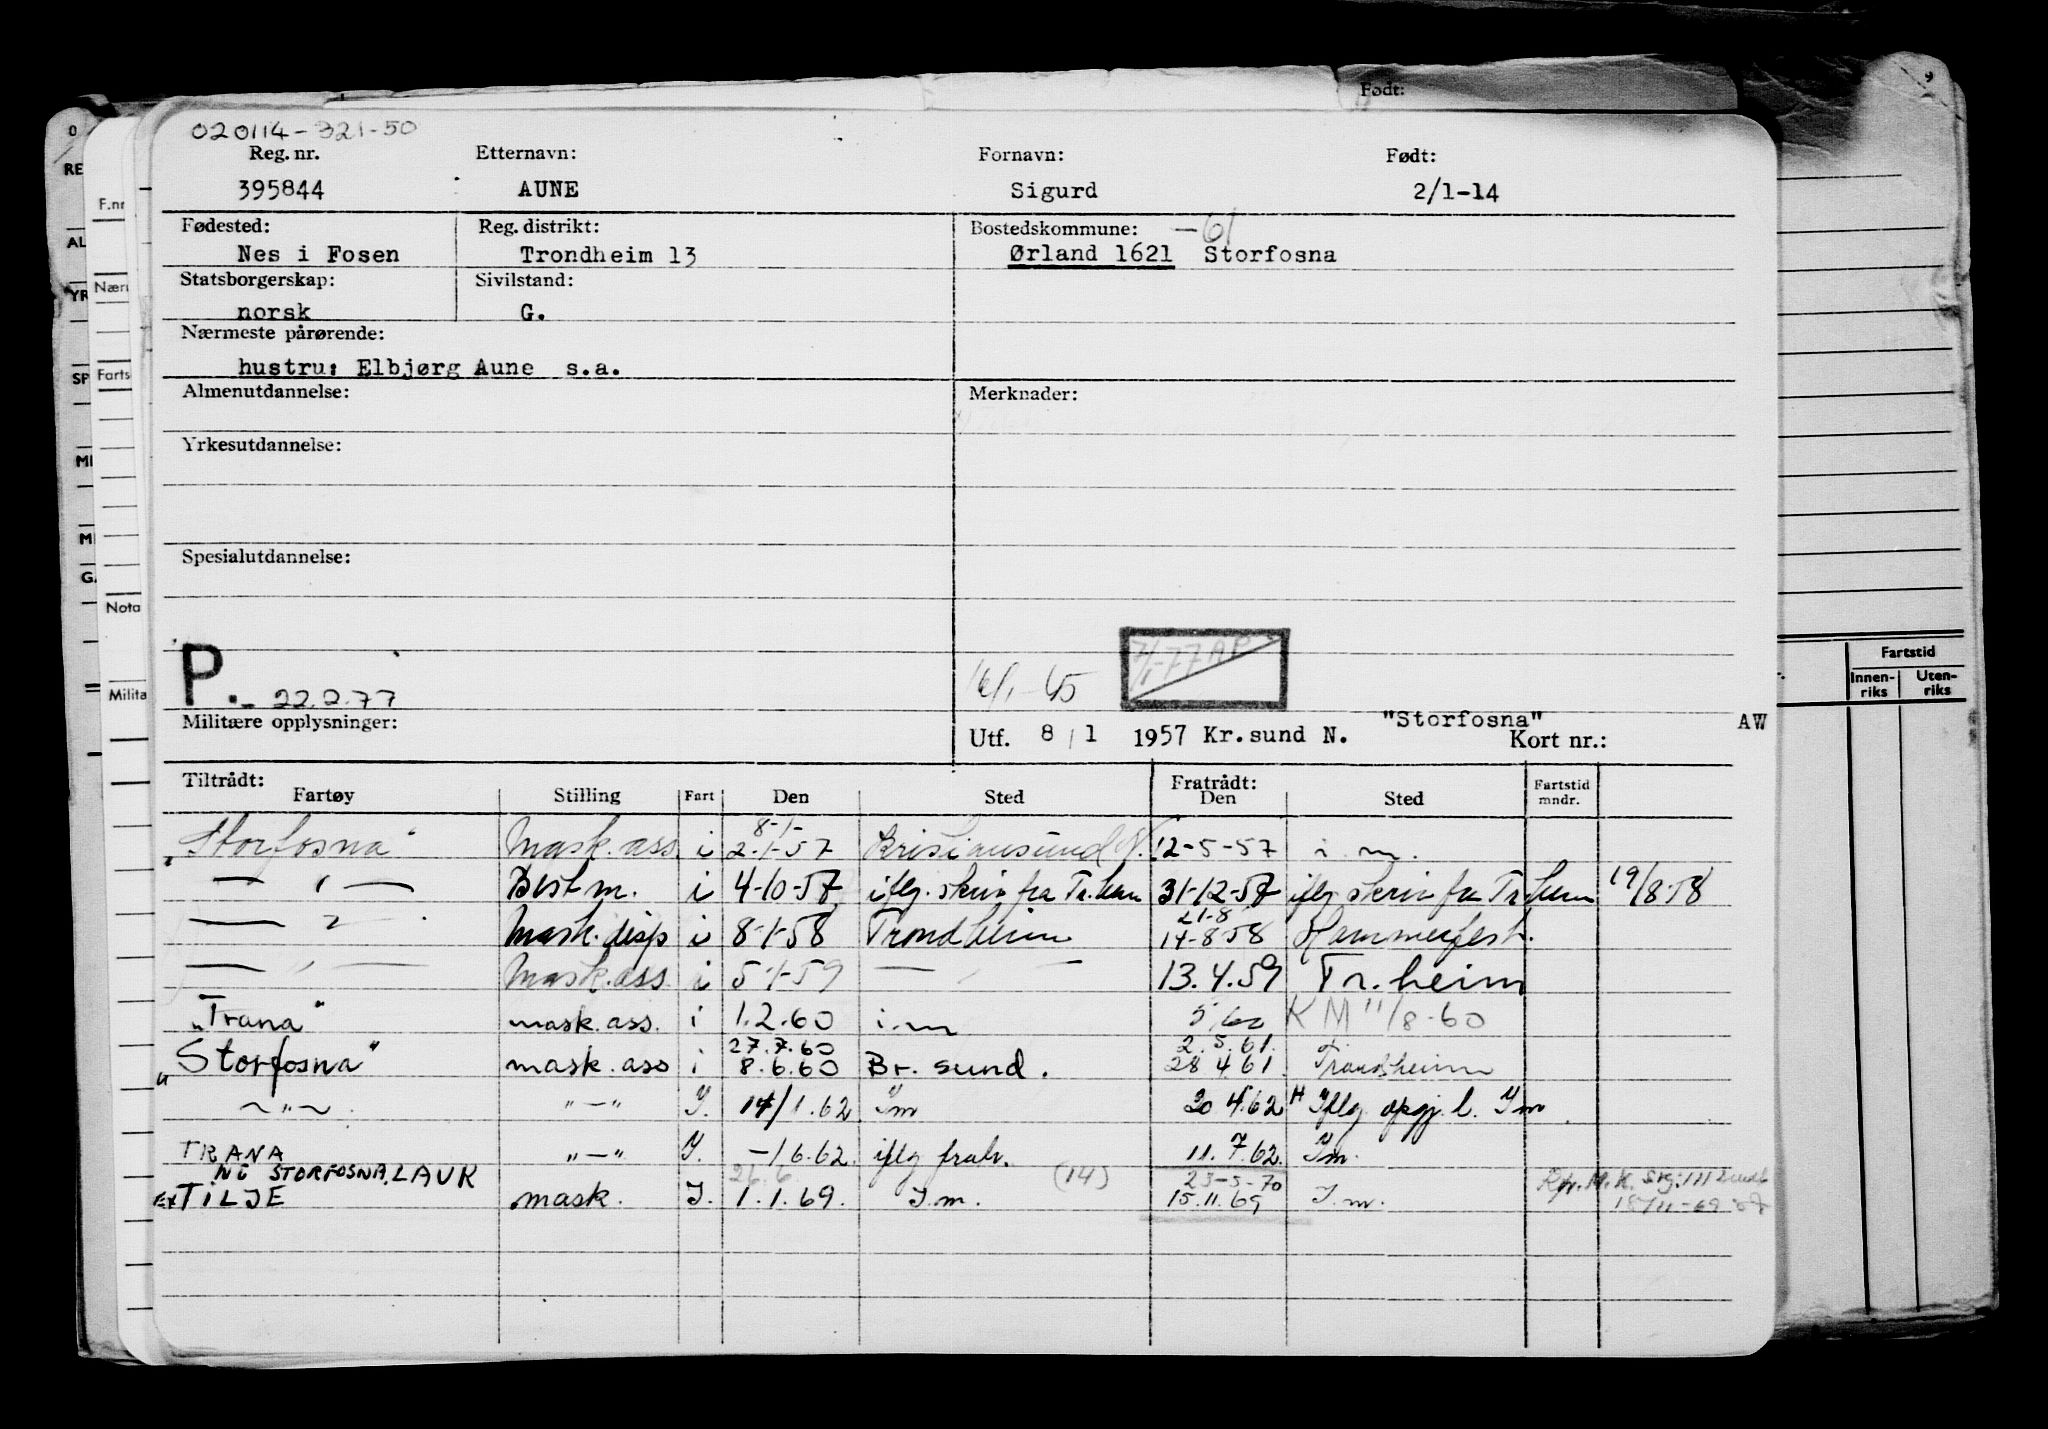 Født:
9
020114-321-50
Reg. nr. Etternavn: Fornavn: Født:
395844 AUNE Sigurd 2/1-14
Fødested: Reg. distrikt: Bostedskommune: -61
Nes i Fosen Trondheim 13 Ørland 1621 Storfosna
Statsborgerskap: Sivilstand:
norsk G.
Nærmeste pårørende:
hustru: Elbjørg Aune s.a.
Almenutdannelse: Merknader:
Yrkesutdannelse:
Spesialutdannelse:
P. - 22.2.77
Militære opplysninger:
"Storfosna" AW
Utf. 8/1 1957 Kr.sund N. Kort nr.:
Tiltrådt: Fratrådt: Fartstid
Fartøy Stilling Fart Den Sted Den Sted mndr.
8-1-
"Storfosna" Mask. ass. i 2-1-57 Kristiansund N. 12-5-57 i.m.
— " — Best m. i 4-10-57 iflg. skriv fra Tr.heim 31-12-57 iflg skriv fra Tr.heim 19/8-58
21-8
— " Mask. disp i 8-1-58 Trondheim 14-8-58 Hammerfest.
— " — Mask. ass. i 5-1-59 — " — 13.4.59 Tr.heim
"Trana" mask. ass. i 1.2.60 i.m 5/60 KM 11/8-60
27.7.60 2.5.61.
"Storfosna" mask. ass i 8.6.60 Br. sund. 28 4.61 Trondheim
~ " ~ " — " I. 14/1.62 Im 30 4.62 Iflg. oppg. l. Im
TRANA " — " I. -/6.62. iflg fratr. 11.7.62. Im.
NÅ STORFOSNA, LAUK 26.6 (14) 23-5-70
Ex TILJE mask. I. 1.1.69. I.m. 15.11.69 I.m.
Fartstid
Innen-riks Uten-riks